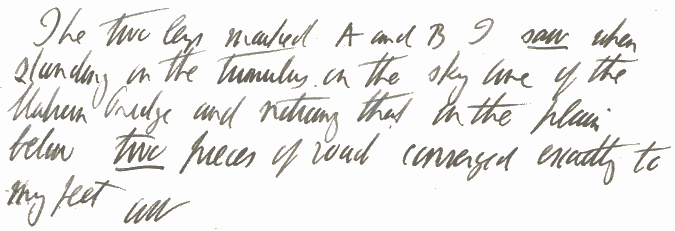 The two leys marked A and B I saw when
standing on the tumulus on the sky line of the
Malvern Bridge and noticing that in the plain
below two pieces of road converged exactly to
my feet AW